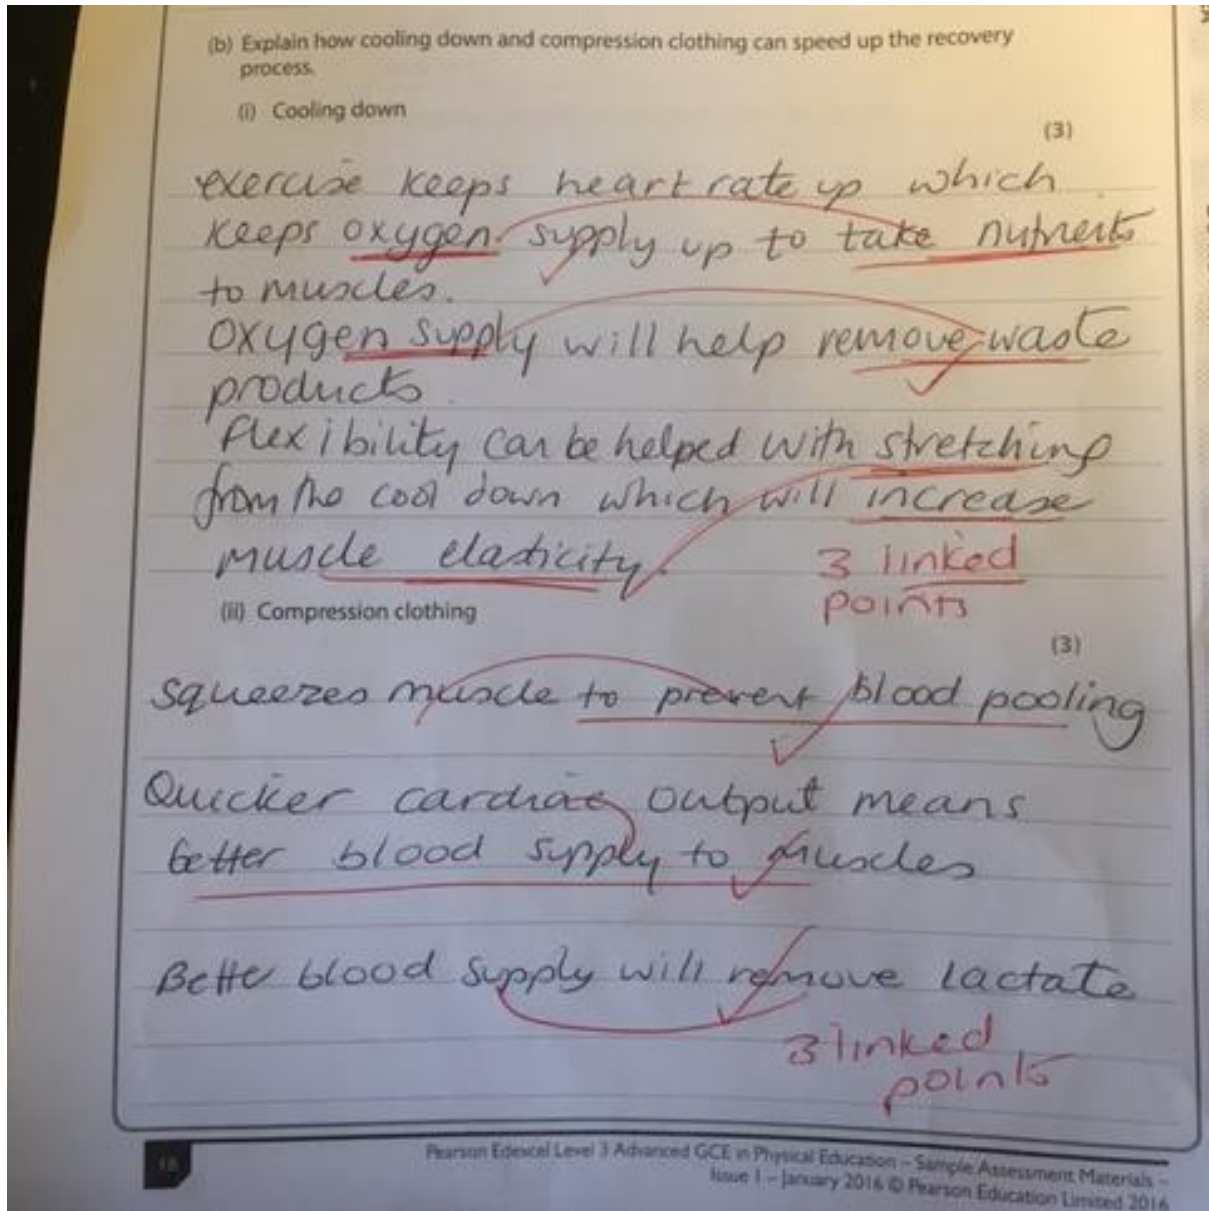 (b) Explain how cooling down and compression clothing can speed up the recovery
process.
(i) Cooling down
(3)
exercise keeps heart rate up which
keeps oxygen supply up to take nutrients
to muscles.
oxygen supply will help remove waste
products.
flexibility can be helped with stretching
from the cool down which will increase
muscle elasticity.
3 linked
points
(ii) Compression clothing
(3)
Squeezes muscle to prevent blood pooling
Quicker cardiac output means
better blood supply to muscles
Better blood supply will remove lactate
3 linked
points
18
Pearson Edexcel Level 3 Advanced GCE in Physical Education – Sample Assessment Materials –
Issue 1 – January 2016 © Pearson Education Limited 2016